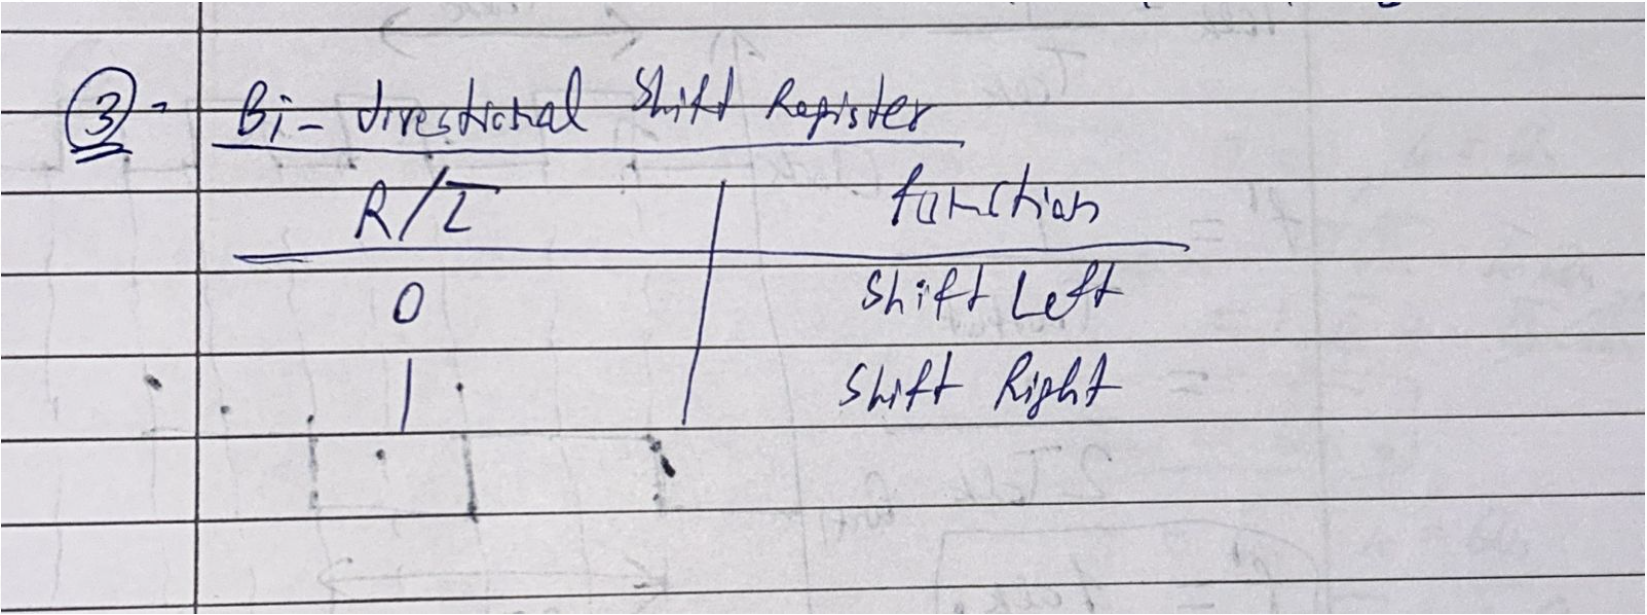 ③- Bi-directional Shift Register
R/L̅ function
0 Shift Left
1 Shift Right